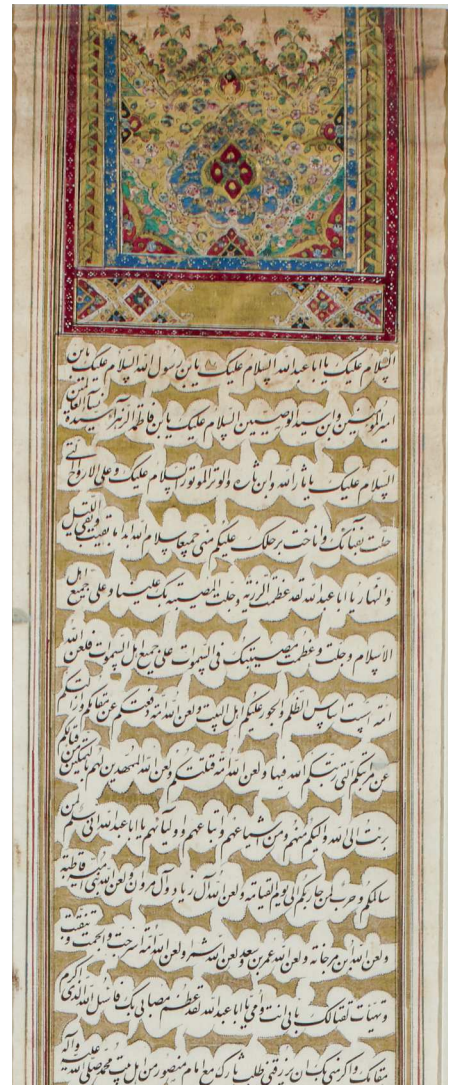 السلام علیک یا ابا عبدالله السلام علیک یابن رسول الله السلام علیک یابن
امیرالمومنین وابن سید الوصیین السلام علیک یابن فاطمة الزهرا سیدة نسآء العالمین
السلام علیک یا ثار الله وابن ثاره والوتر الموتور السلام علیک وعلی الارواح التی
حلت بفنآئک واناخت برحلک علیکم منی جمیعا سلام الله ابدا ما بقیت وبقی اللیل
والنهار یا ابا عبدالله لقد عظمت الرزیة وجلت المصیبة بک علینا وعلی جمیع اهل
الاسلام وجلت وعظمت مصیبتک فی السموات علی جمیع اهل السموات فلعن الله
امة اسست اساس الظلم والجور علیکم اهل البیت ولعن الله امة دفعتکم عن مقامکم وازالتکم
عن مراتبکم التی رتبکم الله فیها ولعن الله امة قتلتکم ولعن الله الممهدین لهم بالتمکین من قتالکم
برئت الی الله والیکم منهم ومن اشیاعهم واتباعهم واولیآئهم یا ابا عبدالله انی سلم لمن
سالمکم وحرب لمن حاربکم الی یوم القیامة ولعن الله آل زیاد وآل مروان ولعن الله بنی امیة قاطبة
ولعن الله ابن مرجانة ولعن الله عمر بن سعد ولعن الله شمرا ولعن الله امة اسرجت والجمت وتنقبت
وتهیات لقتالک بابی انت وامی یا ابا عبدالله لقد عظم مصابی بک فاسئل الله الذی اکرم
مقامک واکرمنی بک ان یرزقنی طلب ثارک مع امام منصور من اهل بیت محمد صلی الله علیه وآله